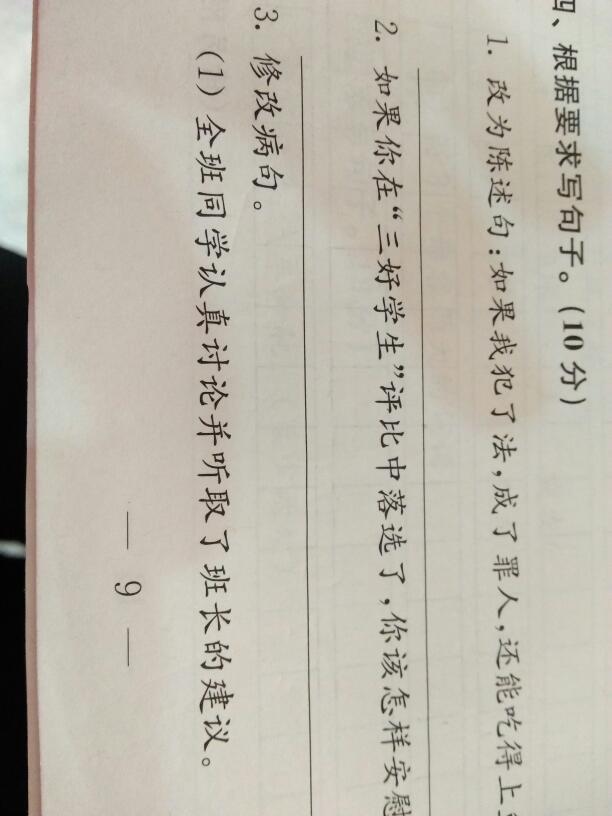 四、根据要求写句子。(10分)
1. 改为陈述句:如果我犯了法,成了罪人,还能吃得上
2. 如果你在“三好学生”评比中落选了,你该怎样安慰
3. 修改病句。
(1) 全班同学认真讨论并听取了班长的建议。
— 9 —